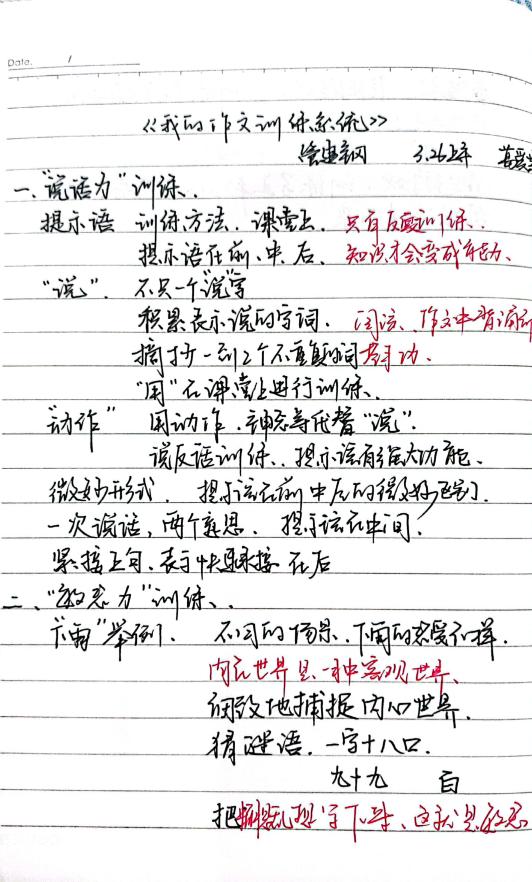 Date. /
《我的作文训练系统》
管建刚 3.26上午
一、"说话力"训练、
提示语 训练方法. 课堂上. 只有反复训练、
提示语在前、中、后、知识才会变成能力、
"说". 不只一个"说"字
积累表示说的字词. 阅读、作文中有
摘抄一到2个不重复的词
"用"在课堂上进行训练、
"动作" 用动作、神态等代替"说".
说反话训练、提示语有强大功能、
微妙形式. 提示语在前中后的微妙区别.
一次说话,两个意思. 提示语在中间、
紧接上句、表示快速承接 在后
二、"敏感力"训练、
"下雨"举例. 不同的情景、下雨的感受不一样.
内心世界是一种客观世界、
细致地捕捉内心世界.
猜谜语. 一字十八口.
九十九 白
把 写下来、这就是敏感